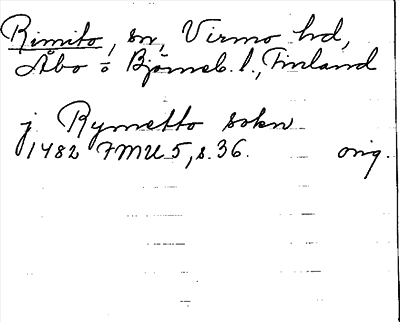 Rimito, sn, Virmo hd,
Åbo o Björneb. l., Finland
j Rymetto sokn
1482 FMU 5, s. 36. orig.